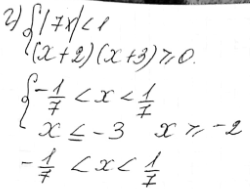 г) { |7x| < 1
(x+2)(x+3) ≥ 0.
{ -1/7 < x < 1/7
x ≤ -3 x ≥ -2
-1/7 < x < 1/7